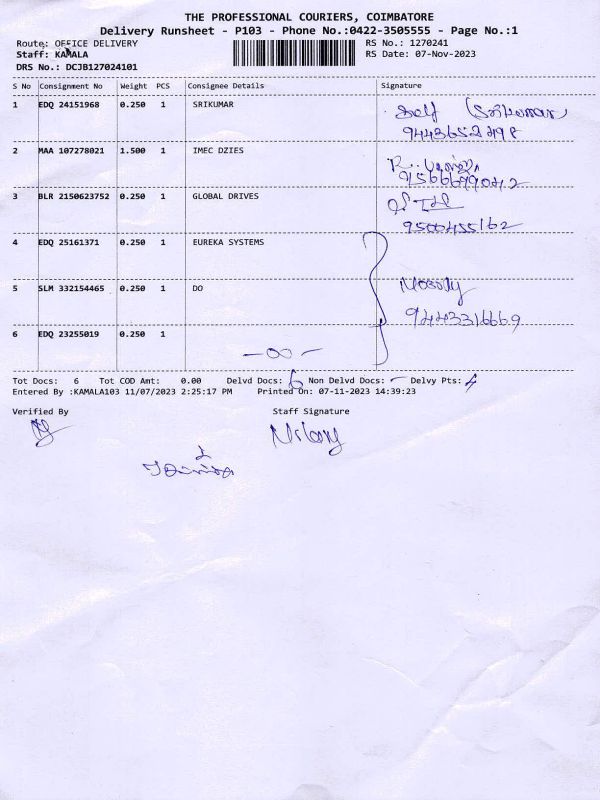 THE PROFESSIONAL COURIERS, COIMBATORE
Delivery Runsheet - P103 - Phone No.:0422-3505555 - Page No.:1
Route: OFFICE DELIVERY RS No.: 1270241
Staff: KAMALA RS Date: 07-Nov-2023
DRS No.: DCJB127024101
S No Consignment No Weight PCS Consignee Details Signature
1 EDQ 24151968 0.250 1 SRIKUMAR Self (Srikumar)
9443652498
2 MAA 107278021 1.500 1 IMEC DZIES
9566699042
3 BLR 2150623752 0.250 1 GLOBAL DRIVES
9500455162
4 EDQ 25161371 0.250 1 EUREKA SYSTEMS
5 SLM 332154465 0.250 1 DO
9443316669
6 EDQ 23255019 0.250 1
Tot Docs: 6 Tot COD Amt: 0.00 Delvd Docs: 6 Non Delvd Docs: - Delvy Pts: 4
Entered By :KAMALA103 11/07/2023 2:25:17 PM Printed On: 07-11-2023 14:39:23
Verified By Staff Signature